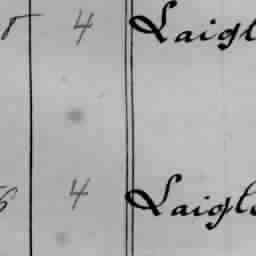 4 Laigl
4 Laigl